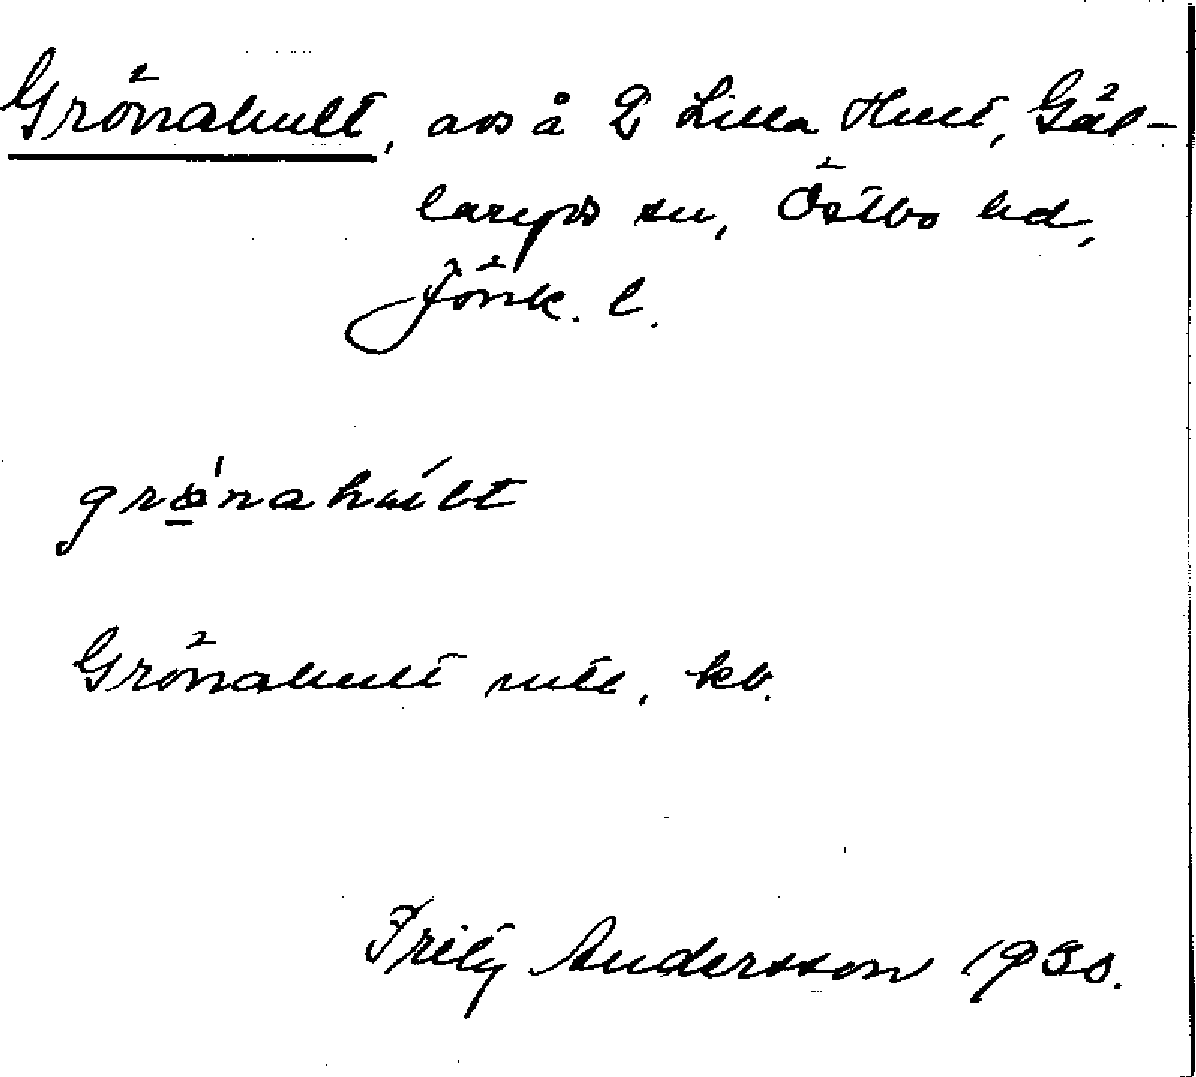 Grönahult, avs å 2 Lilla Hult, Gäl-
laryds sn, Östbo hd,
Jönk. l.
grö̱́nahúlt
Grönahult utt., kb.
Fritz Andersson 1930.